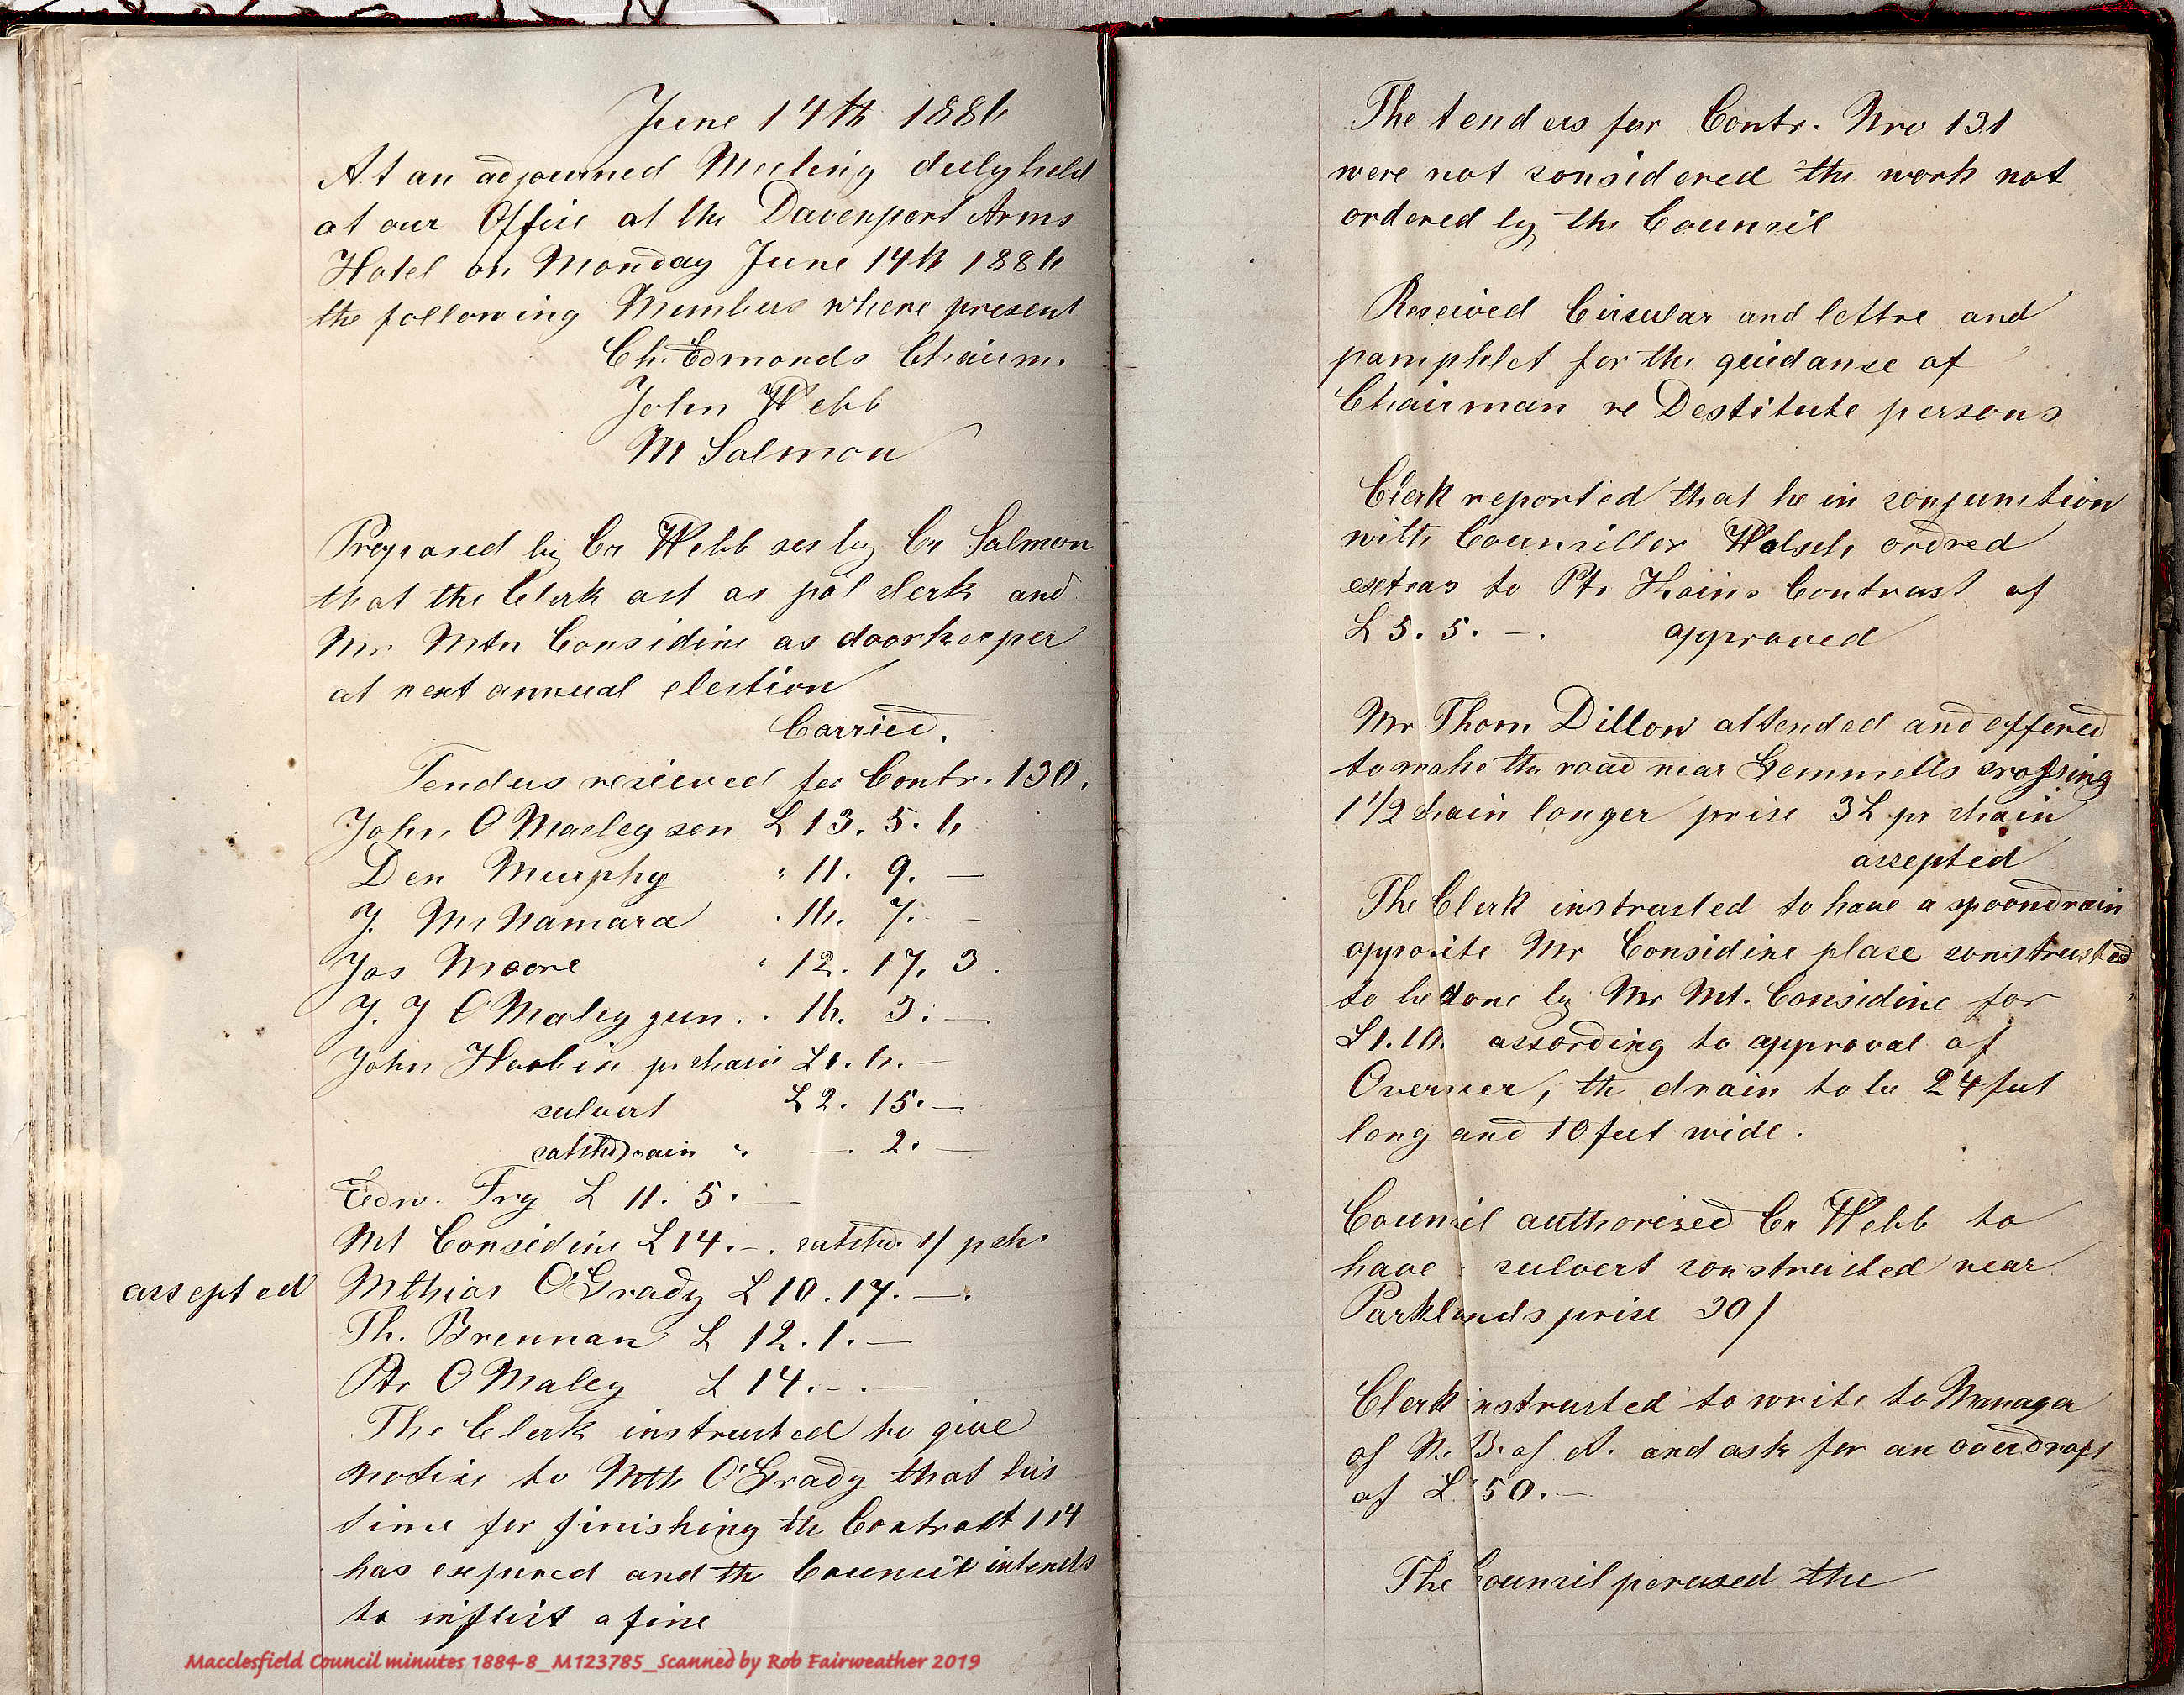 June 14th 1886
At an adjourned Meeting duly held
at our Office at the Davenport Arms
Hotel on Monday June 14th 1886
the following Members where present
Ch. Edmonds Chairm.
John Webb
M Salmon
Proposed by Cr Webb sec by Cr Salmon
that the Clerk act as pol clerk and
Mr Mtn Considine as doorkeeper
at next annual election
Carried.
Tenders received for Contr. 130.
John O Maeley sen £ 13. 5. 6
Den Murphy " 11. 9. —
J. Mc Namara " 16. 7. —
Jas Moore " 12. 17. 3.
J. J O Maley jun. " 16. 3. —
John Hoolin pr chain £1. 6. —
culvert £2. 15. —
catchdrain " —. 2. —
Edw. Fry £ 11. 5. —
Mt Considine £14. –. catchd. 1/ p ch.
accepted Mthias O'Grady £10. 17. —.
Th. Brennan £ 12. 1. —
Ptr O Maley £ 14. –. —
The Clerk instructed to give
notice to Mth O'Grady that his
time for finishing the Contract 114
has expired and the Council intends
to inflict a fine
Macclesfield Council minutes 1884-8_M123785_Scanned by Rob Fairweather 2019
The tenders for Contr. Nro 131
were not considered the work not
ordered by the Council
Received Circular and lettre and
pamphlet for the guidance of
Chairman re Destitute persons
Clerk reported that he in conjunction
with Councillor Walsch ordred
extras to Ptr Hains Contract of
£ 5. 5. –. approved
Mr Thom Dillon attended and offered
to make the road near Gemmells crossing
1 1/2 chain longer price 3£ pr chain
accepted
The Clerk instructed to have a spoondrain
opposite Mr Considine place constructed
to be done by Mr Mt. Considine for
£1.10. according to approval of
Overseer, the drain to be 24 feet
long and 10 feet wide.
Council authorised Cr Webb to
have culvert constructed near
Parklands price 30/
Clerk instructed to write to Manager
of N. B. of A. and ask for an overdraft
of £ 50. –
The Council perused the